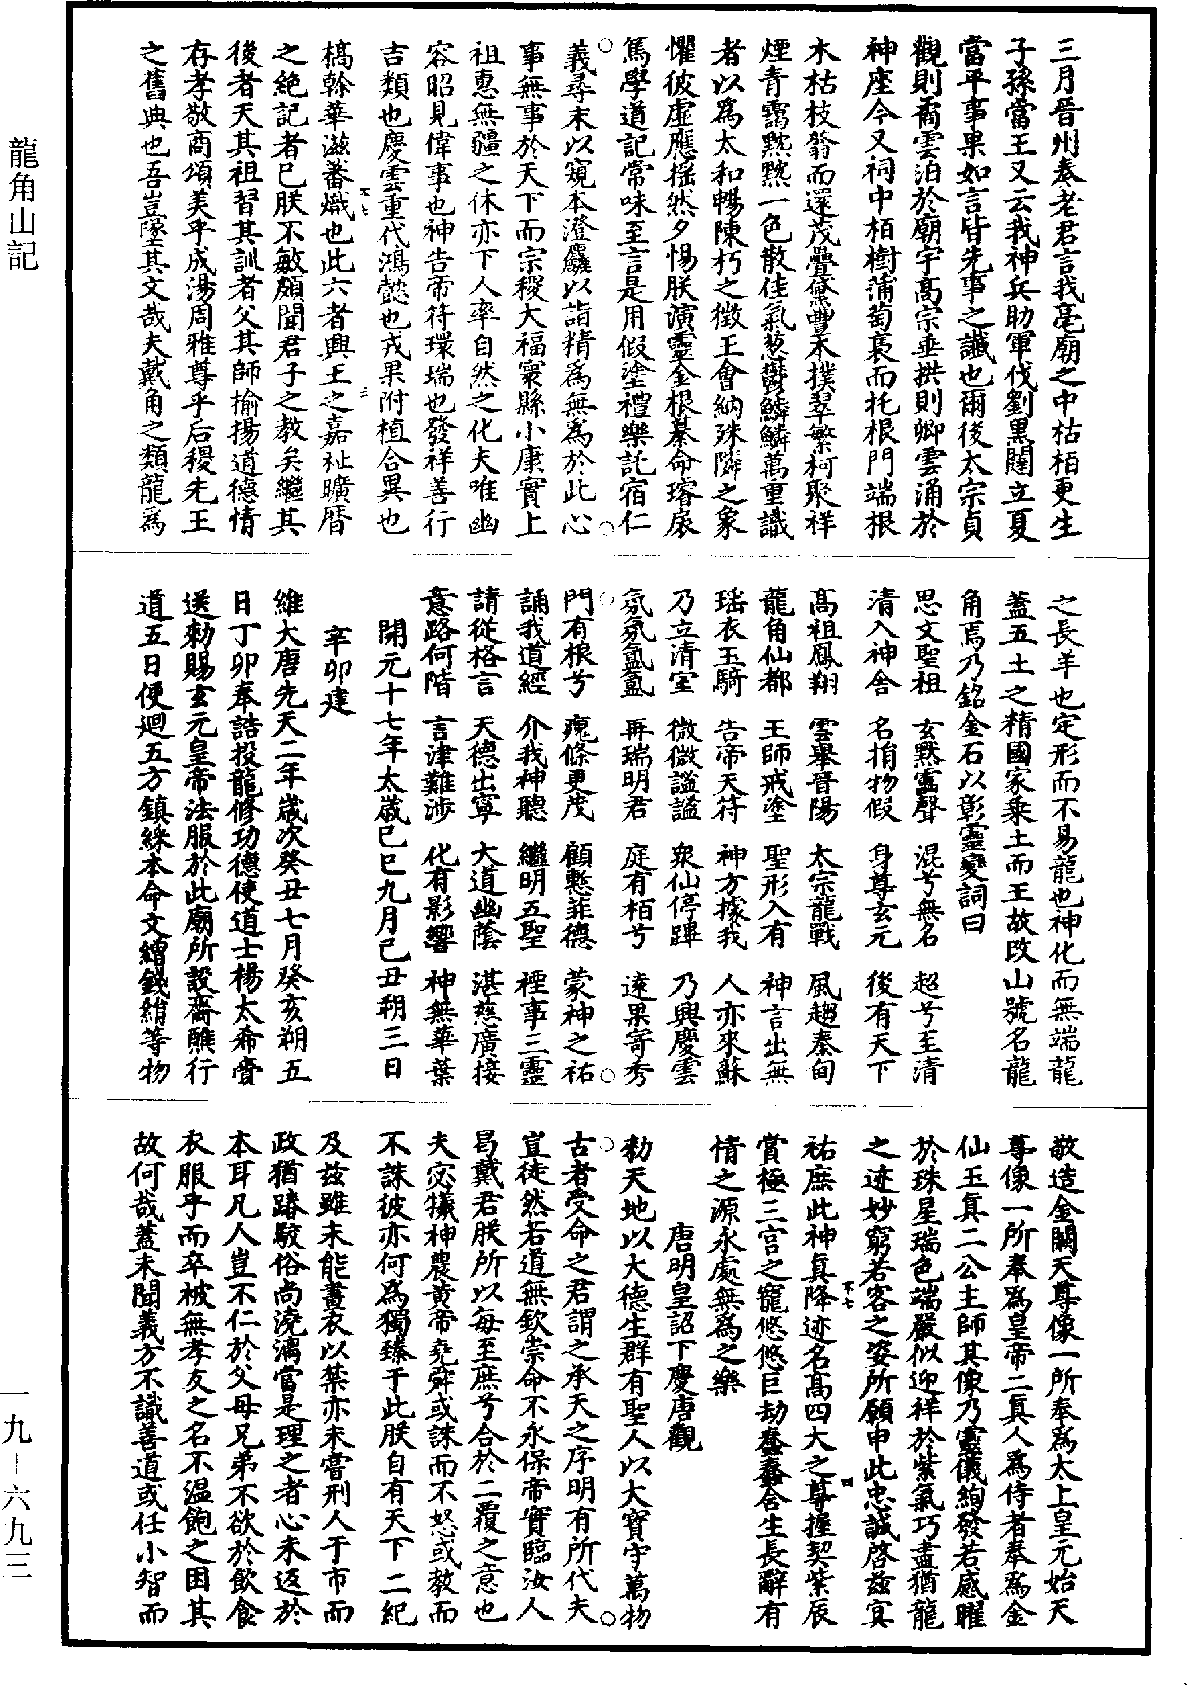 龍角山記
三月晉州奏老君言我亳廟之中枯栢更生
子孫當王又云我神兵助軍伐劉黑闥立夏
當平事果如言皆先事之讖也爾後太宗貞
觀則矞雲泊於廟宇高宗垂拱則卿雲涌於
神座今又祠中栢樹蒲萄裛而托根門端根
木枯枝翳而還茂疊黛曹禾撲翠繁柯聚祥
煙青靄㸃㸃一色散佳氣葱鬱鱗鱗萬重識
者以爲太和暢陳朽之徵王會納殊隣之象
懼彼虛應揺然夕惕朕演靈金根綦命璿扆
篤學道記常味至言是用假塗禮樂託宿仁
義尋末以窺本澄麤以詣精爲無爲於此心
事無事於天下而宗稷大福寰縣小康實上
祖惠無疆之休亦下人率自然之化夫唯幽
容昭見偉事也神告帝符環端也發祥善行
吉類也慶雲重代鴻懿也戎果附植合異也
槁榦華滋蕃熾也此六者興王之嘉祉曠曆
之絶記者已朕不敏頗聞君子之教矣繼其
後者天其祖習其訓者父其師揄揚道德情
存孝敬商頌美乎成湯周雅尊乎后稷先王
之舊典也吾豈墜其文哉夫戴角之類龍爲
之長羊也定形而不易龍也神化而無端龍
蓋五土之精國家乘土而王故改山號名龍
角焉乃銘金石以彰靈變詞曰
思文聖祖 玄黙靈聲 混兮無名 超兮至清
清入神舍 名揹物假 身尊玄元 後有天下
高祖鳳翔 雲舉晉陽 太宗龍戰 風趨秦甸
龍角仙都 王師戒塗 聖形入有 神言出無
瑶衣玉騎 告帝天符 神方據我 人亦來蘇
乃立清室 微微謐謐 衆仙停蹕 乃興慶雲
氛氛氳氳 再瑞明君 庭有栢兮 逺果寄秀
門有根兮 㾽條更茂 顧慙菲德 蒙神之祐
誦我道經 介我神聽 繼明五聖 禋事三靈
請從格言 天德出寧 大道幽蔭 湛慈廣接
意路何階 言津難涉 化有影響 神無華葉
開元十七年太歲己巳九月己丑朔三日
辛卯建
維大唐先天二年歲次癸丑七月癸亥朔五
日丁卯奉誥投龍修功德使道士楊太希賫
送勑賜玄元皇帝法服於此廟所設齋醮行
道五日便迴五方鎮綵本命文繒錢絹等物
敬造金闕天尊像一所奉爲太上皇元始天
尊像一所奉爲皇帝二真人爲侍者奉爲金
仙玉真二公主師其像乃靈儀絢發若感曜
於珠星瑞色端嚴似迎祥於紫氣巧盡猶龍
之迹妙窮若客之姿所願申此忠誠啓兹㝠
祐庶此神真降迹名高四大之尊握契紫辰
賞極三宫之寵悠悠巨劫蠢蠢含生長辭有
情之源永處無爲之樂
唐明皇詔下慶唐觀
勑天地以大德生群有聖人以大寶守萬物
古者受命之君謂之承天之序明有所代夫
豈徒然若道無欽崇命不永保帝實臨汝人
曷戴君朕所以每至庶兮合於二覆之意也
夫宓犧神農黄帝堯舜或誅而不怒或教而
不誅彼亦何爲獨臻于此朕自有天下二紀
及兹雖未能畫衣以禁亦未嘗刑人于市而
政猶踳駮俗尚澆漓當是理之者心未返於
本耳凡人豈不仁於父母兄弟不欲於飲食
衣服乎而卒被無孝友之名不温飽之困其
故何哉蓋未聞義方不識善道或任小智而
一九-六九三